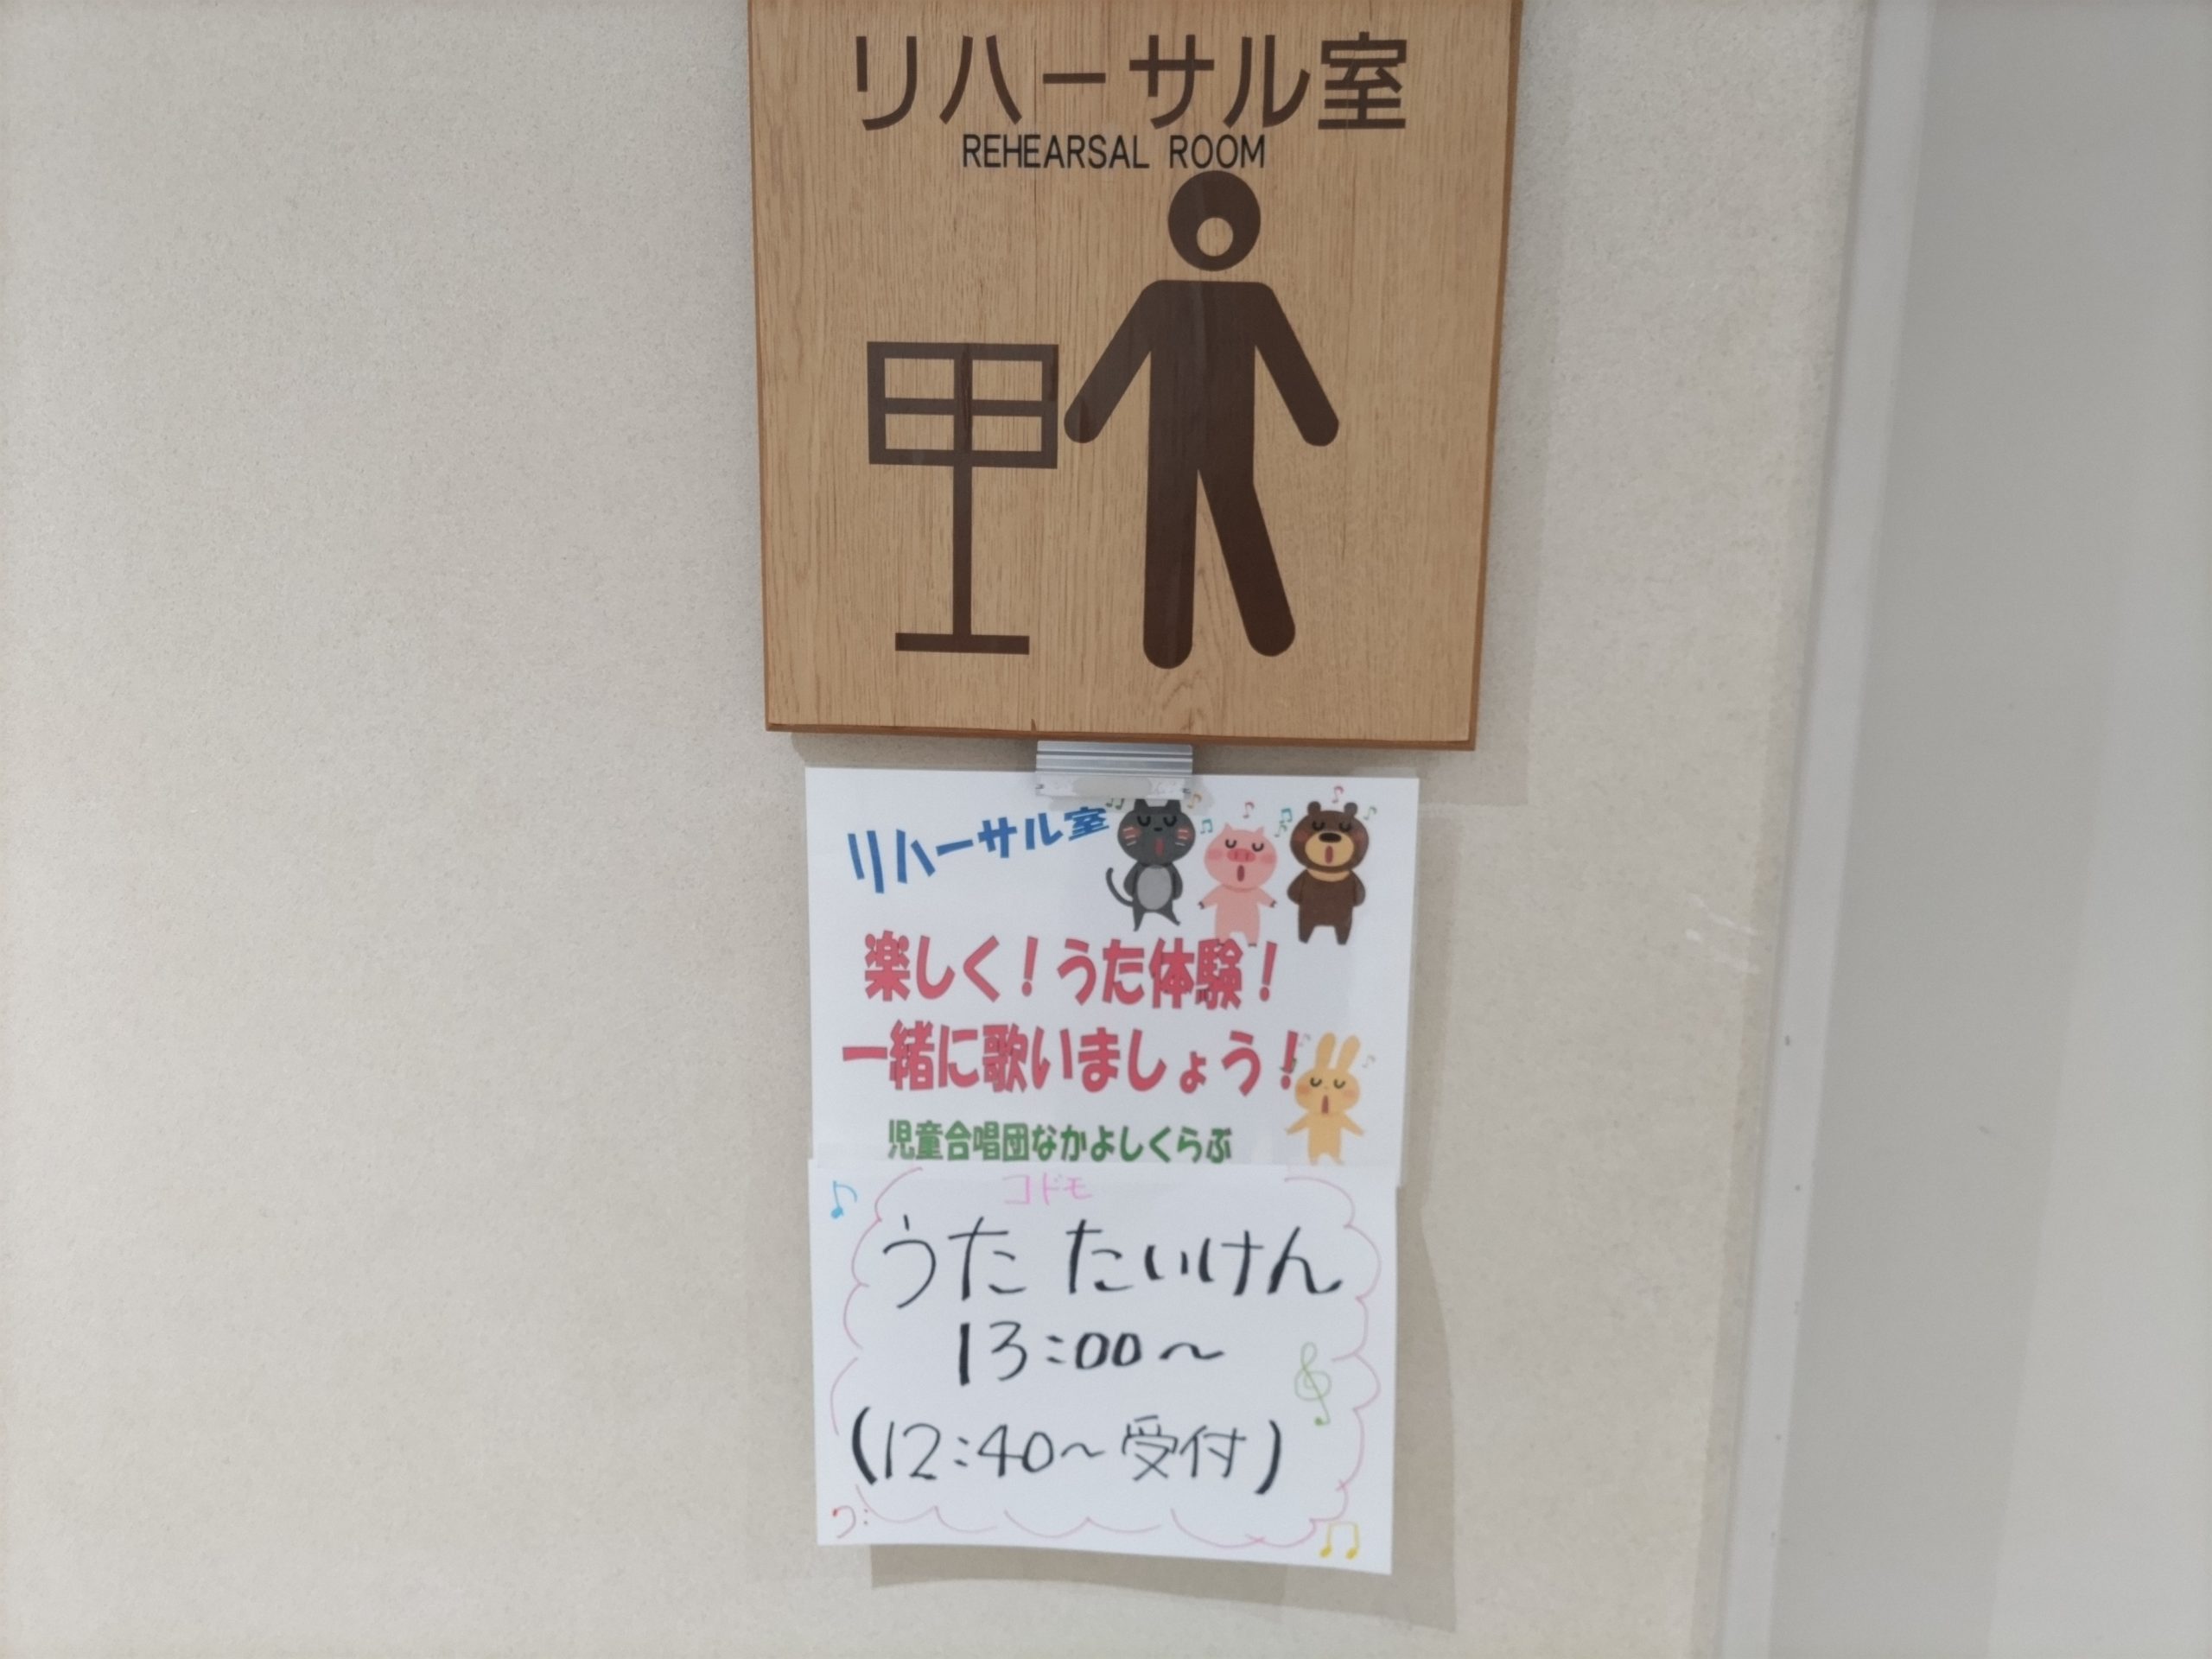 リハーサル室
REHEARSAL ROOM
リハーサル室
楽しく！うた体験！
一緒に歌いましょう！
児童合唱団なかよしくらぶ
コドモ
うた たいけん
13:00～
(12:40～受付)